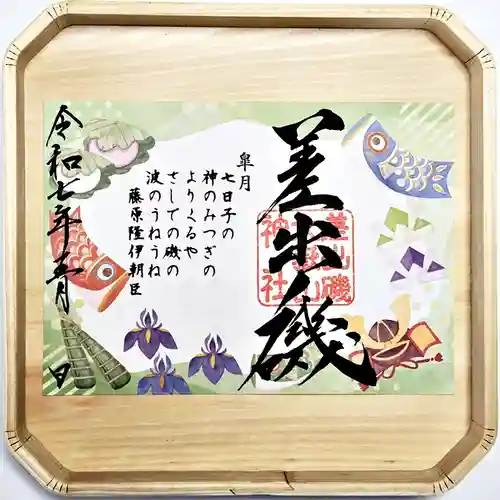 差出磯
皐月
七日子の
神のみつぎの
よりくるや
さしでの磯の
波のうねうね
藤原隆伊朝臣
令和七年五月 日